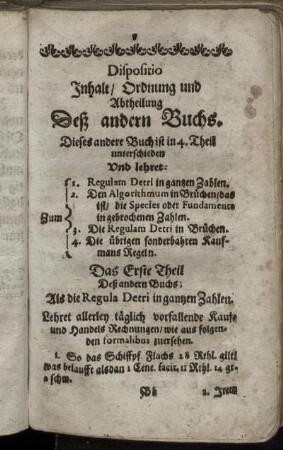 Dispositio
Inhalt/ Ordnung und
Abtheilung
Deß andern Buchs.
Dieses andere Buch ist in 4. Theil
unterschieden
Und lehret:
1. Regulam Detri in gantzen Zahlen.
2. Den Algorithmum in Brüchen/das
ist/ die Species oder Fundamenta
Zum in gebrochenen Zahlen.
3. Die Regulam Detri in Brüchen.
4. Die übrigen sonderbahren Kauf-
mans Regeln.
Das Erste Theil
Deß andern Buchs:
Als die Regula Detri in gantzen Zahlen.
Lehret allerley täglich vorfallende Kauff
und Handels Rechnungen/ wie aus folgen-
den formalibus zuersehen.
1. So das Schiffpf. Flachs 28 Rthl. gilt/
was belaufft alsdan 1 Cent. facit. 11 Rthl. 14 gr.
2. Item